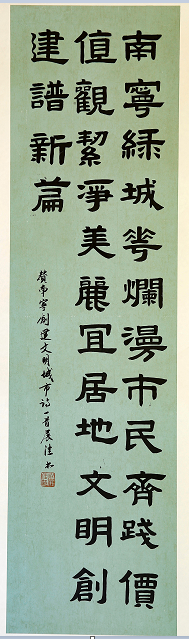 南寧綠城花爛漫市民齊踐價
值觀絜淨美麗宜居地文明創
建譜新篇
贊南寧創建文明城市詩一首晨建书